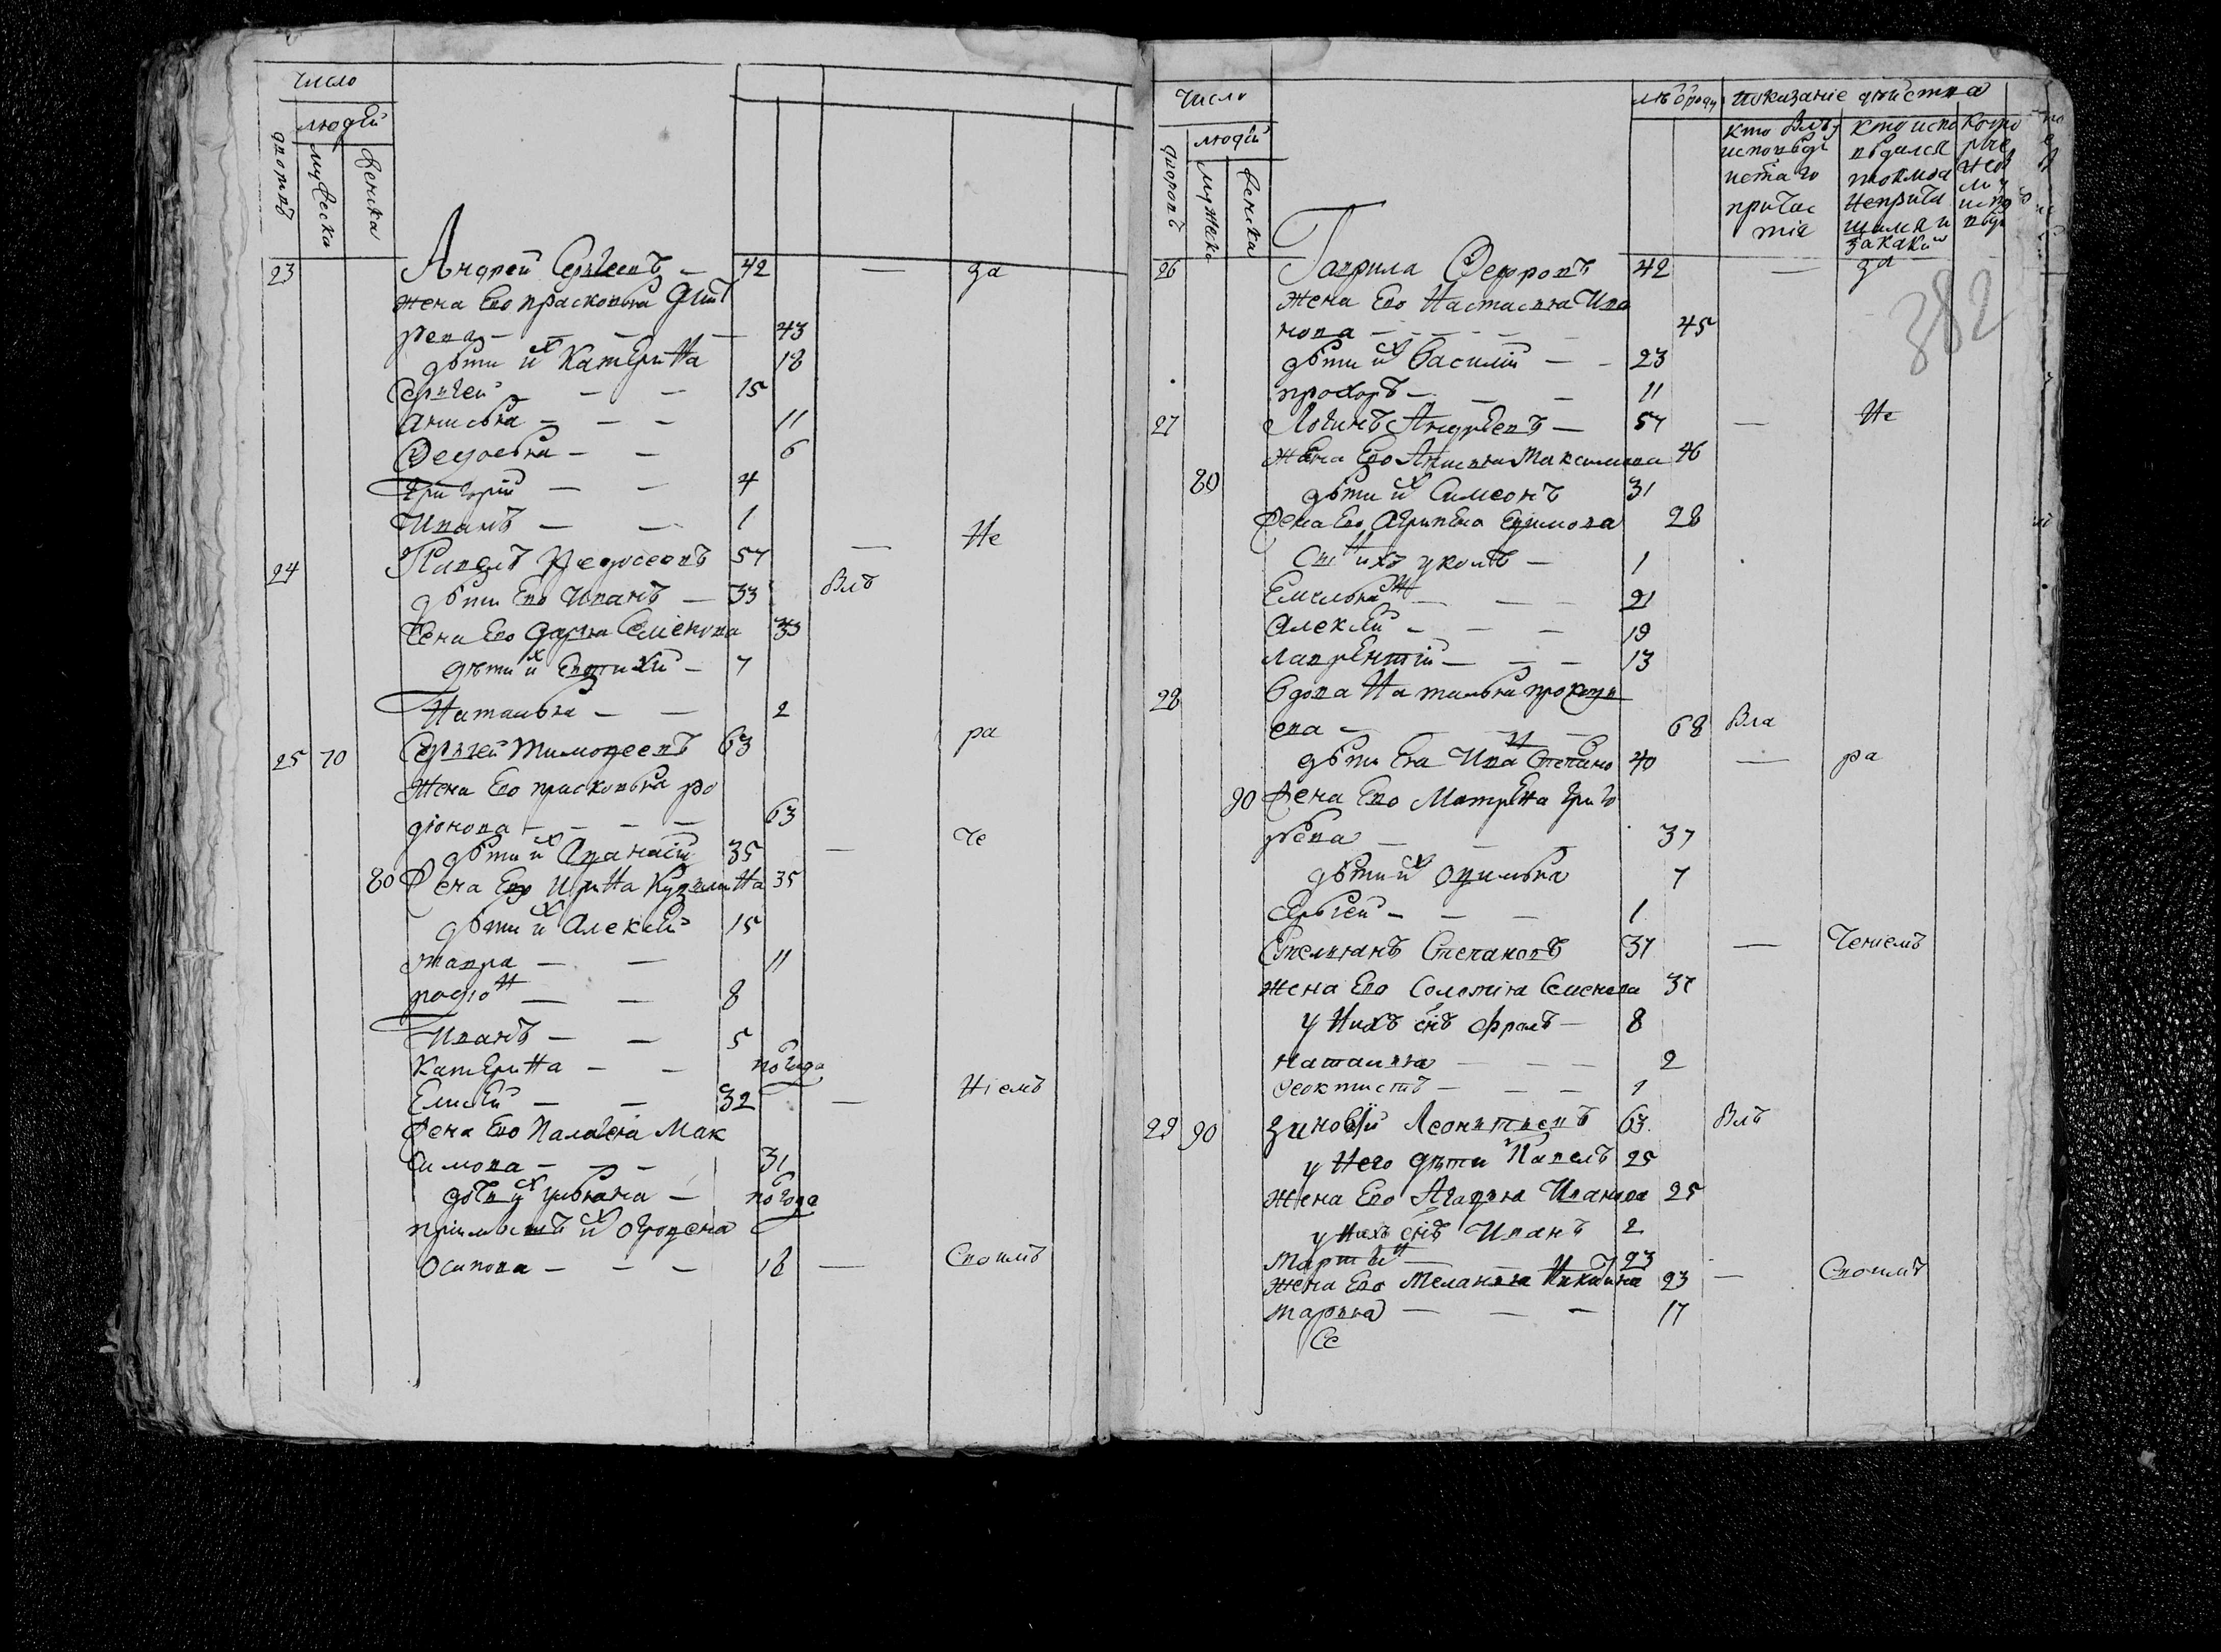 Число
людей
дворовъ
мужеска
женска
23 Андрей Сергѣевъ — 42 — за
жена Ево прасковья Дмит
рева — — — — 43
дѣти их Катерина 18
Сергѣй — — 15
анисья — — — 11
Федосья — — 6
Григорій — — 4
Иванъ — — 1
24 Павелъ Федосеевъ 57 — Не
дѣти Ево Иванъ — 33 Влъ
жена Ево Дарья Семенова 33
дѣти их Евтихи — 7
Наталья — — 2
25 70 Сергѣй Тимофеевъ 63 ра
жена Ево прасковья ро
діонова — — — — 63
дѣти их Афанасіи 35 — че
80 жена Ево Ирина Кузмина 35
дѣти их Алексѣй 15
мавра — — 11
родіон — — 8
Иванъ — — 5
Катерина — — погода
Елисѣй — — 32 — ніемъ
жена Ево Палагея Мак
симова — — — 31
дочь их ульяна — погода
пріимышъ их Афросена
Осипова — — — 18 — Своимъ
Число
людей
дворовъ
мужеска
женска
лѣ ѿроду
показаніе действа
кто былъ у исповѣди и свѣтаго причастія
кто испо вѣдался токмо а не прича щался и за каким
кото рые не были у испо вѣди
382
26 Гаврила Федоровъ 42 — за
жена Ево Настасья Ива
нова — — — — 45
дѣти их Василій — — 23
прохоръ — — — 11
27 Логинъ Андрѣевъ — 57 — Не
жена Ево Анисья Максимова 46
80 дѣти их Симеонъ 31
жена Ево Агрипена Ефимова 28
1
Емельян — — — 21
Алексѣй — — — 19
лаврентій — — — 13
28 Вдова Наталья прокофи
ева — — — 68 Бла
дѣти Ея Иван Степано 40 — ра
90 жена Ево Матрена Григо
рѣва — — — 37
дѣти их Офимья 7
Сергѣй — — — 1
Емельянъ Степановъ 37 — Ченіемъ
жена Ево Соломія Семенова 37
у нихъ снъ фролъ — 8
наталия — — — 2
феоктистъ — — — 1
29 90 Зиновѣй Леонтьевъ 63 Влъ
у него дѣти Павелъ 25
жена Ево Агафья Иванова 25
у нихъ снъ Иванъ 2
Мартин — — — 23
жена Ево Меланья Никитина 23 — Своимъ
марья — — — 17
Се